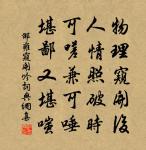 物理窺開後
人情照破時
可嗟兼可唾
堪鄙又堪嗤
邵雍窺開吟詞典網集